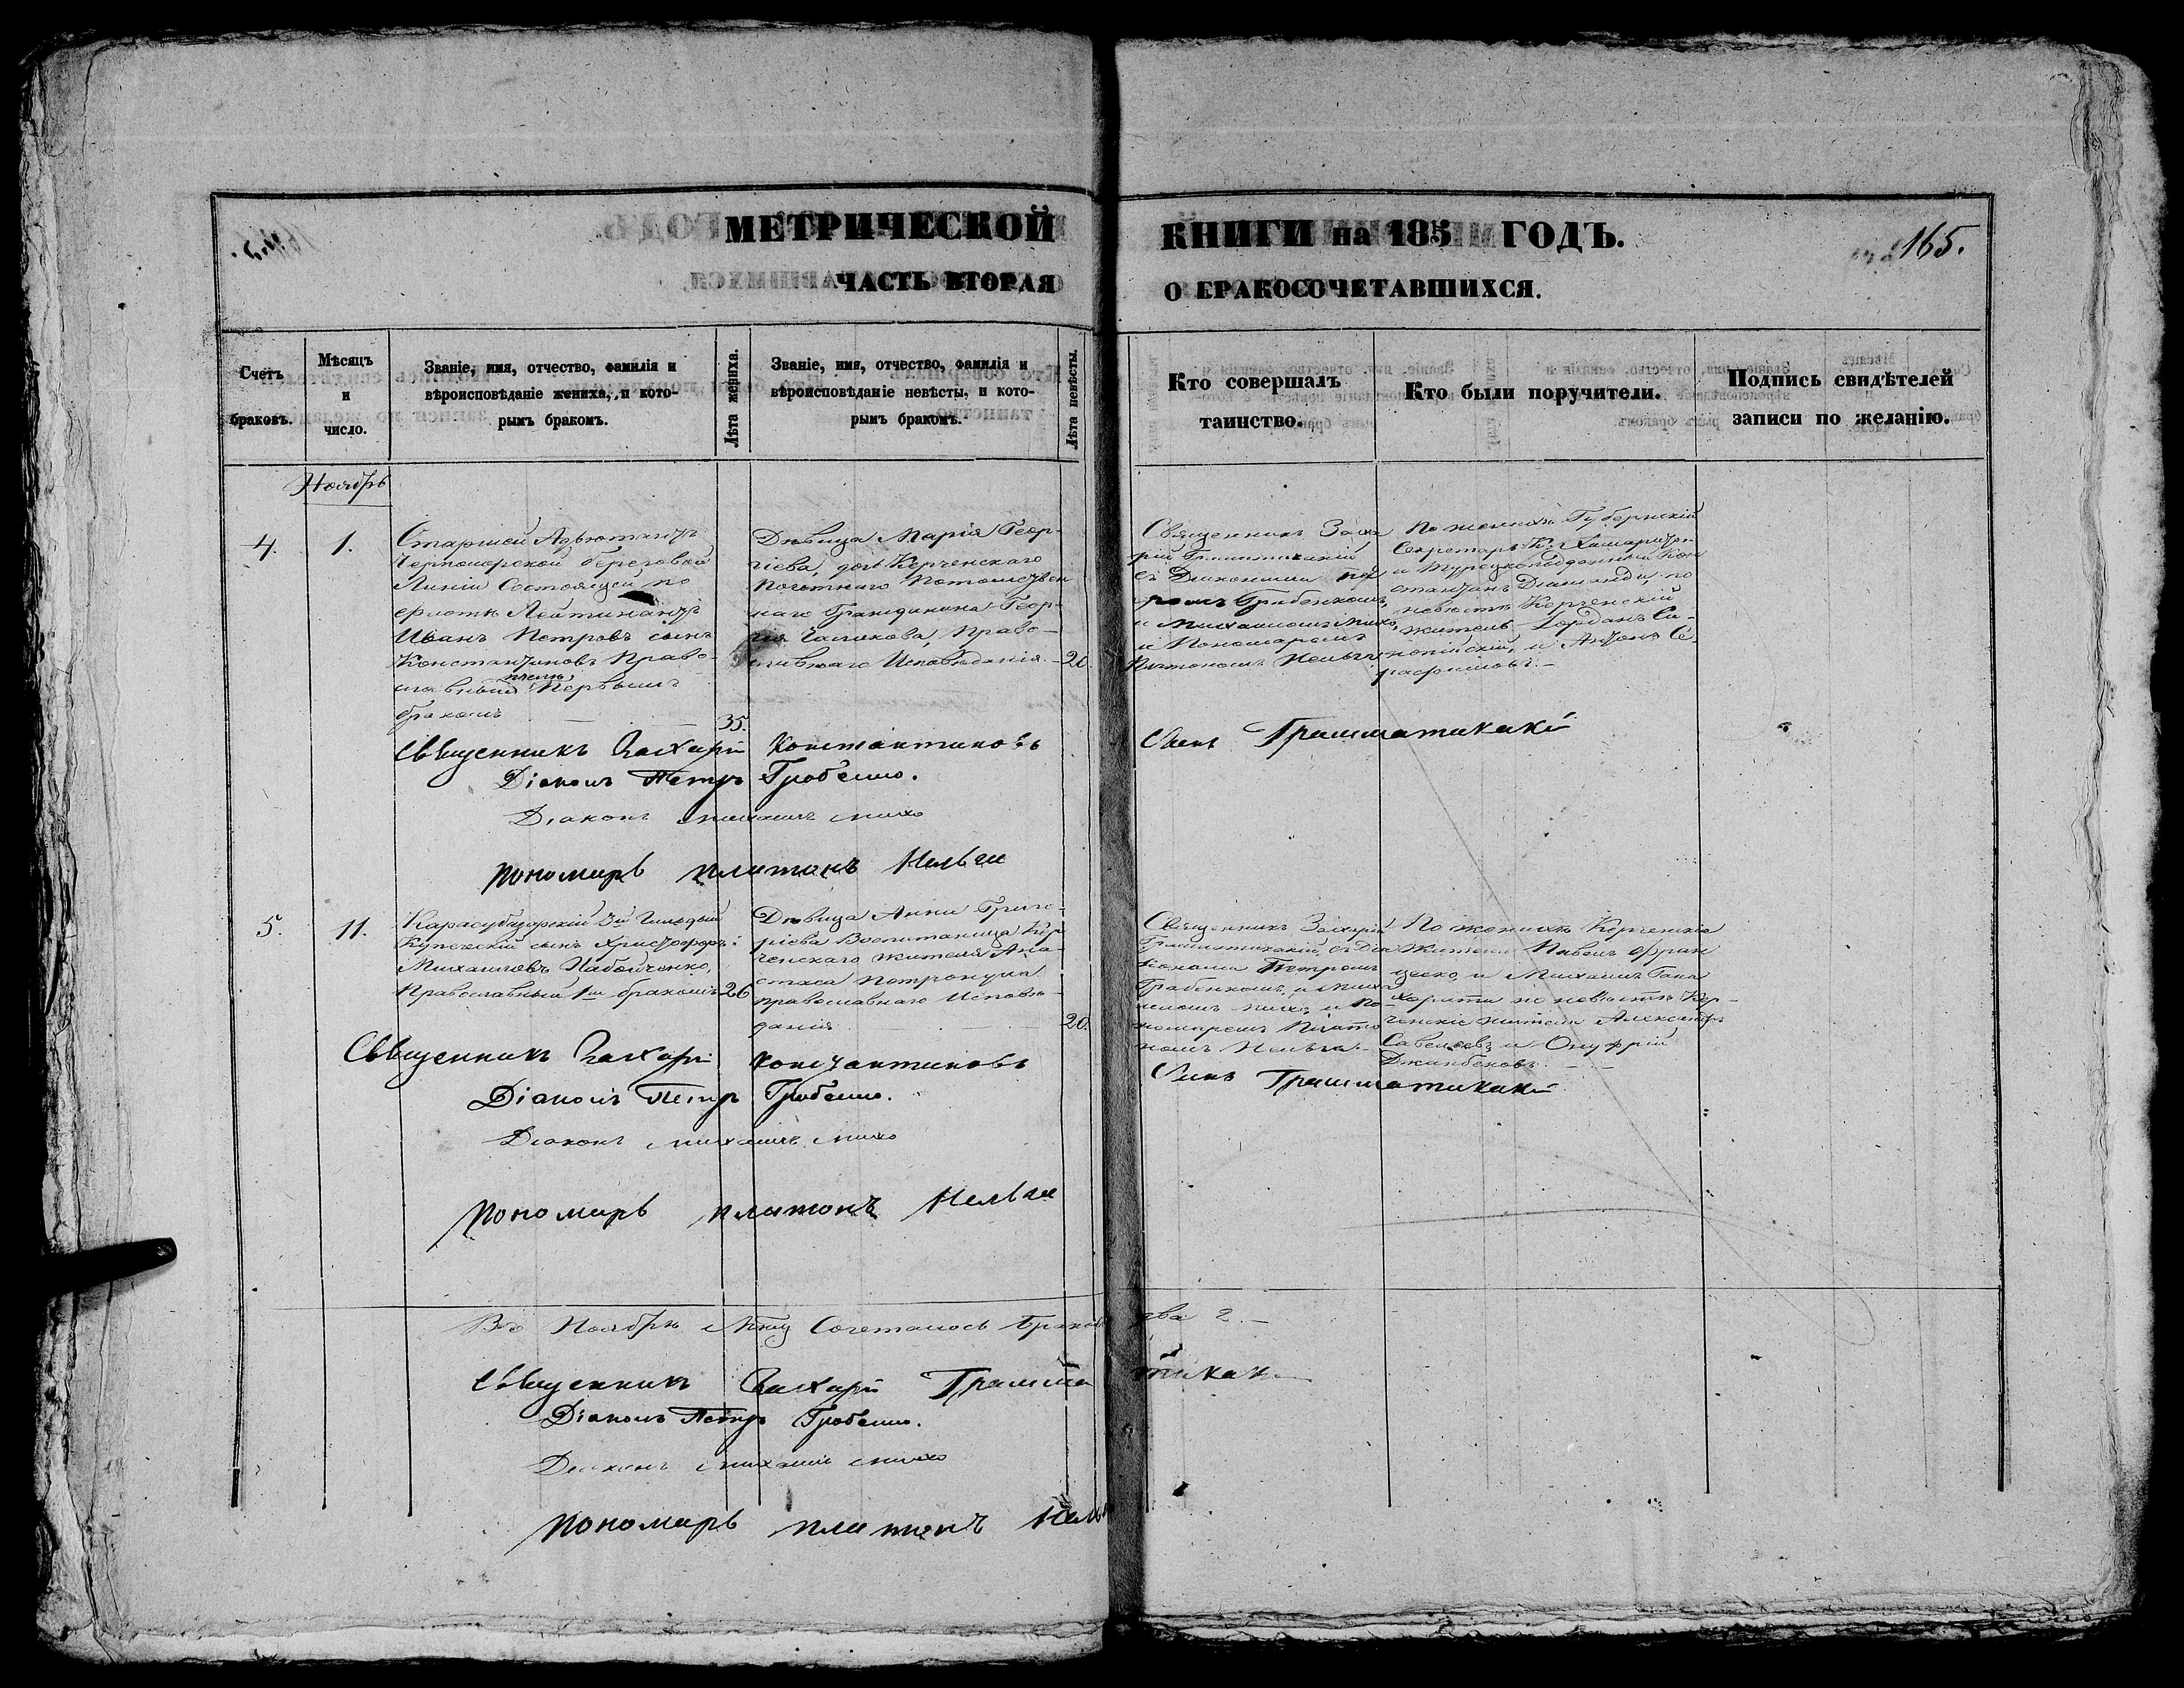 МЕТРИЧЕСКОЙ КНИГИ на 185 ГОДЪ.
165.
ЧАСТЬ ВТОРАЯ О БРАКОСОЧЕТАВШИХСЯ.
Счетъ браковъ.
Мѣсяцъ и число.
Званіе, имя, отчество, фамилія и
вѣроисповѣданіе жениха, и кото-
рымъ бракомъ.
Лѣта жениха.
Званіе, имя, отчество, фамилія и
вѣроисповѣданіе невѣсты, и кото-
рымъ бракомъ.
Лѣта невѣсты.
Кто совершалъ
таинство.
Кто были поручители.
Подпись свидѣтелей
записи по желанію.
Ноябрь
4.
1.
Старшей Адъютантъ
Черноморской береговой
Линіи Состоящей по
флоту Лейтинантъ
Иванъ Петровъ сынъ
Константиновъ Право-
славный Первымъ
бракомъ
35.
Дѣвица Марія Геор-
гіева, дочь Керченскаго
Почетнаго Потомствен
наго Гражданина Геор-
гія Право-
славнаго Исповѣданія.
20.
Священникъ Заха
рій Грамматикакій
съ Діаконами Пет
ромъ Грабенкомъ,
и Михаиломъ Михо,
и Пономаремъ
Платономъ
По женихѣ Губернскій
Секретарь
и Турецко подданный Кон
стантинъ Діаманди, по
невѣстѣ Керченскій
житель Іорданъ Си-
нопійскій, и Антонъ Се-
рафимовъ.
Священникъ Захарій Константиновъ
Сынъ Грамматикакій
Діаконъ Петръ
Діаконъ Михаилъ Михо
Пономарь Платонъ
5.
11.
Карасубазарскій 3й Гильдіи
Купеческій сынъ Христофоръ
Михаиловъ
Православный 1мъ бракомъ
26
Дѣвица Анна Григо-
ріева Воспитаница Кер
ченскаго жителя Ана-
стаса
православнаго Исповѣ-
данія.
20.
Священникъ Захарій
Грамматикакій, съ Діа
конами Петромъ
Грабенкомъ, и Миха
иломъ Михо, и По-
номаремъ Плато
номъ
По женихѣ Керченскіе
Жители Павелъ Фран
ческо, и Михаилъ
по невѣстѣ Кер-
ченскіе жители Александръ
Савельевъ и Онуфрій
Джанбековъ.
Священникъ Захарій Константиновъ
Сынъ Грамматикакій
Діаконъ Петръ
Діаконъ Михаилъ Михо
Пономарь Платонъ
Въ Ноябрѣ М-цѣ Сочеталось Браковъ два 2.
Священникъ Захарій Грамматикаки
Діаконъ Петръ
Діаконъ Михаилъ Михо
Пономарь Платонъ